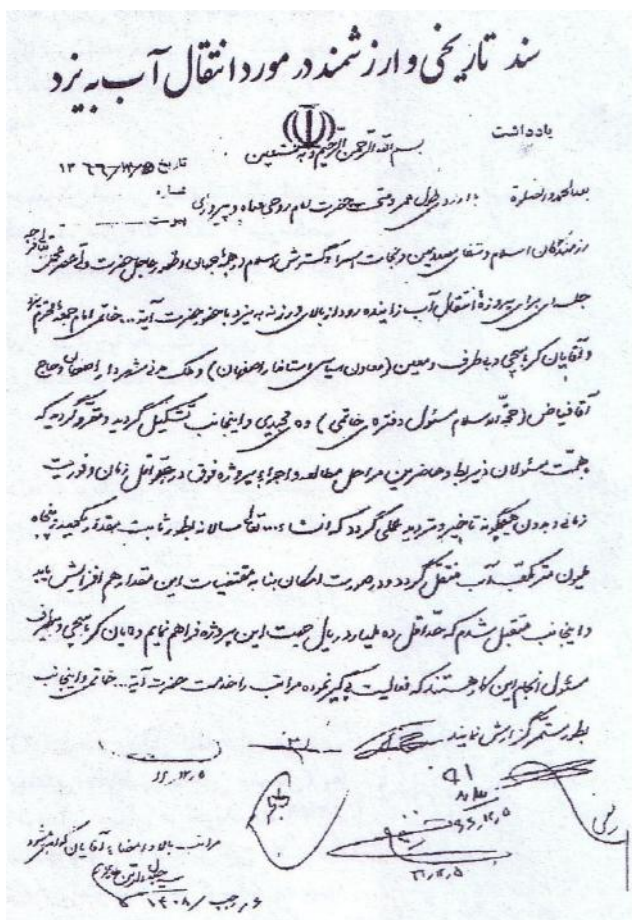 سند تاریخی و ارزشمند در مورد انتقال آب به یزد
یادداشت
بسم الله الرحمن الرحیم و به نستعین
تاریخ ۱۳۶۶/۱۲/۵
شماره
پیوست
بعد الحمد و الصلوة با آرزوی طول عمر حضرت امام روحی فداه و پیروزی
رزمندگان اسلام و شفای معلولین و نجات اسراء و گسترش اسلام در جهان و ظهور عاجل حضرت ولی عصر
جلسه‌ای برای پروژهٔ انتقال آب زاینده رود از بالای ورزنه به یزد با حضور حضرت آیة ... خاتمی امام جمعه محترم یزد
و آقایان کرباسچی و باطرف و معین (معاون سیاسی استاندار اصفهان) و ملک مدنی شهردار اصفهان و حاج
آقا فیاض (حجة الاسلام مسئول دفتر خاتمی) و مجیدی و اینجانب تشکیل گردید و مقرر گردید که
بهمت مسئولان ذیربط و حاضرین مراحل مطالعه و اجراء پروژه فوق در حداقل زمان و فوریت
زمانی و بدون هیچگونه تاخیر و تردید عملی گردد که انشاء ... تعالی سالانه بطور ثابت یکصد و پنجاه
ملیون متر مکعب آب منتقل گردد و در صورت امکان بنا به مقتضیات این مقدار هم افزایش یابد
و اینجانب متقبل شدم که حداقل ده ملیارد ریال جهت این پروژه فراهم نمایم و آقایان کرباسچی و باطرف
مسئول انجام این کار هستند که فعالیت پیگیر نموده مراتب را خدمت حضرت آیة ... خاتمی و اینجانب
بطور مستمر گزارش نمایند
۶۶/۱۲/۵
۶۶/۱۲/۵
۶۶/۱۲/۵
مراتب بالا و امضاء آقایان گواهی میشود
۶ رجب ۱۴۰۸